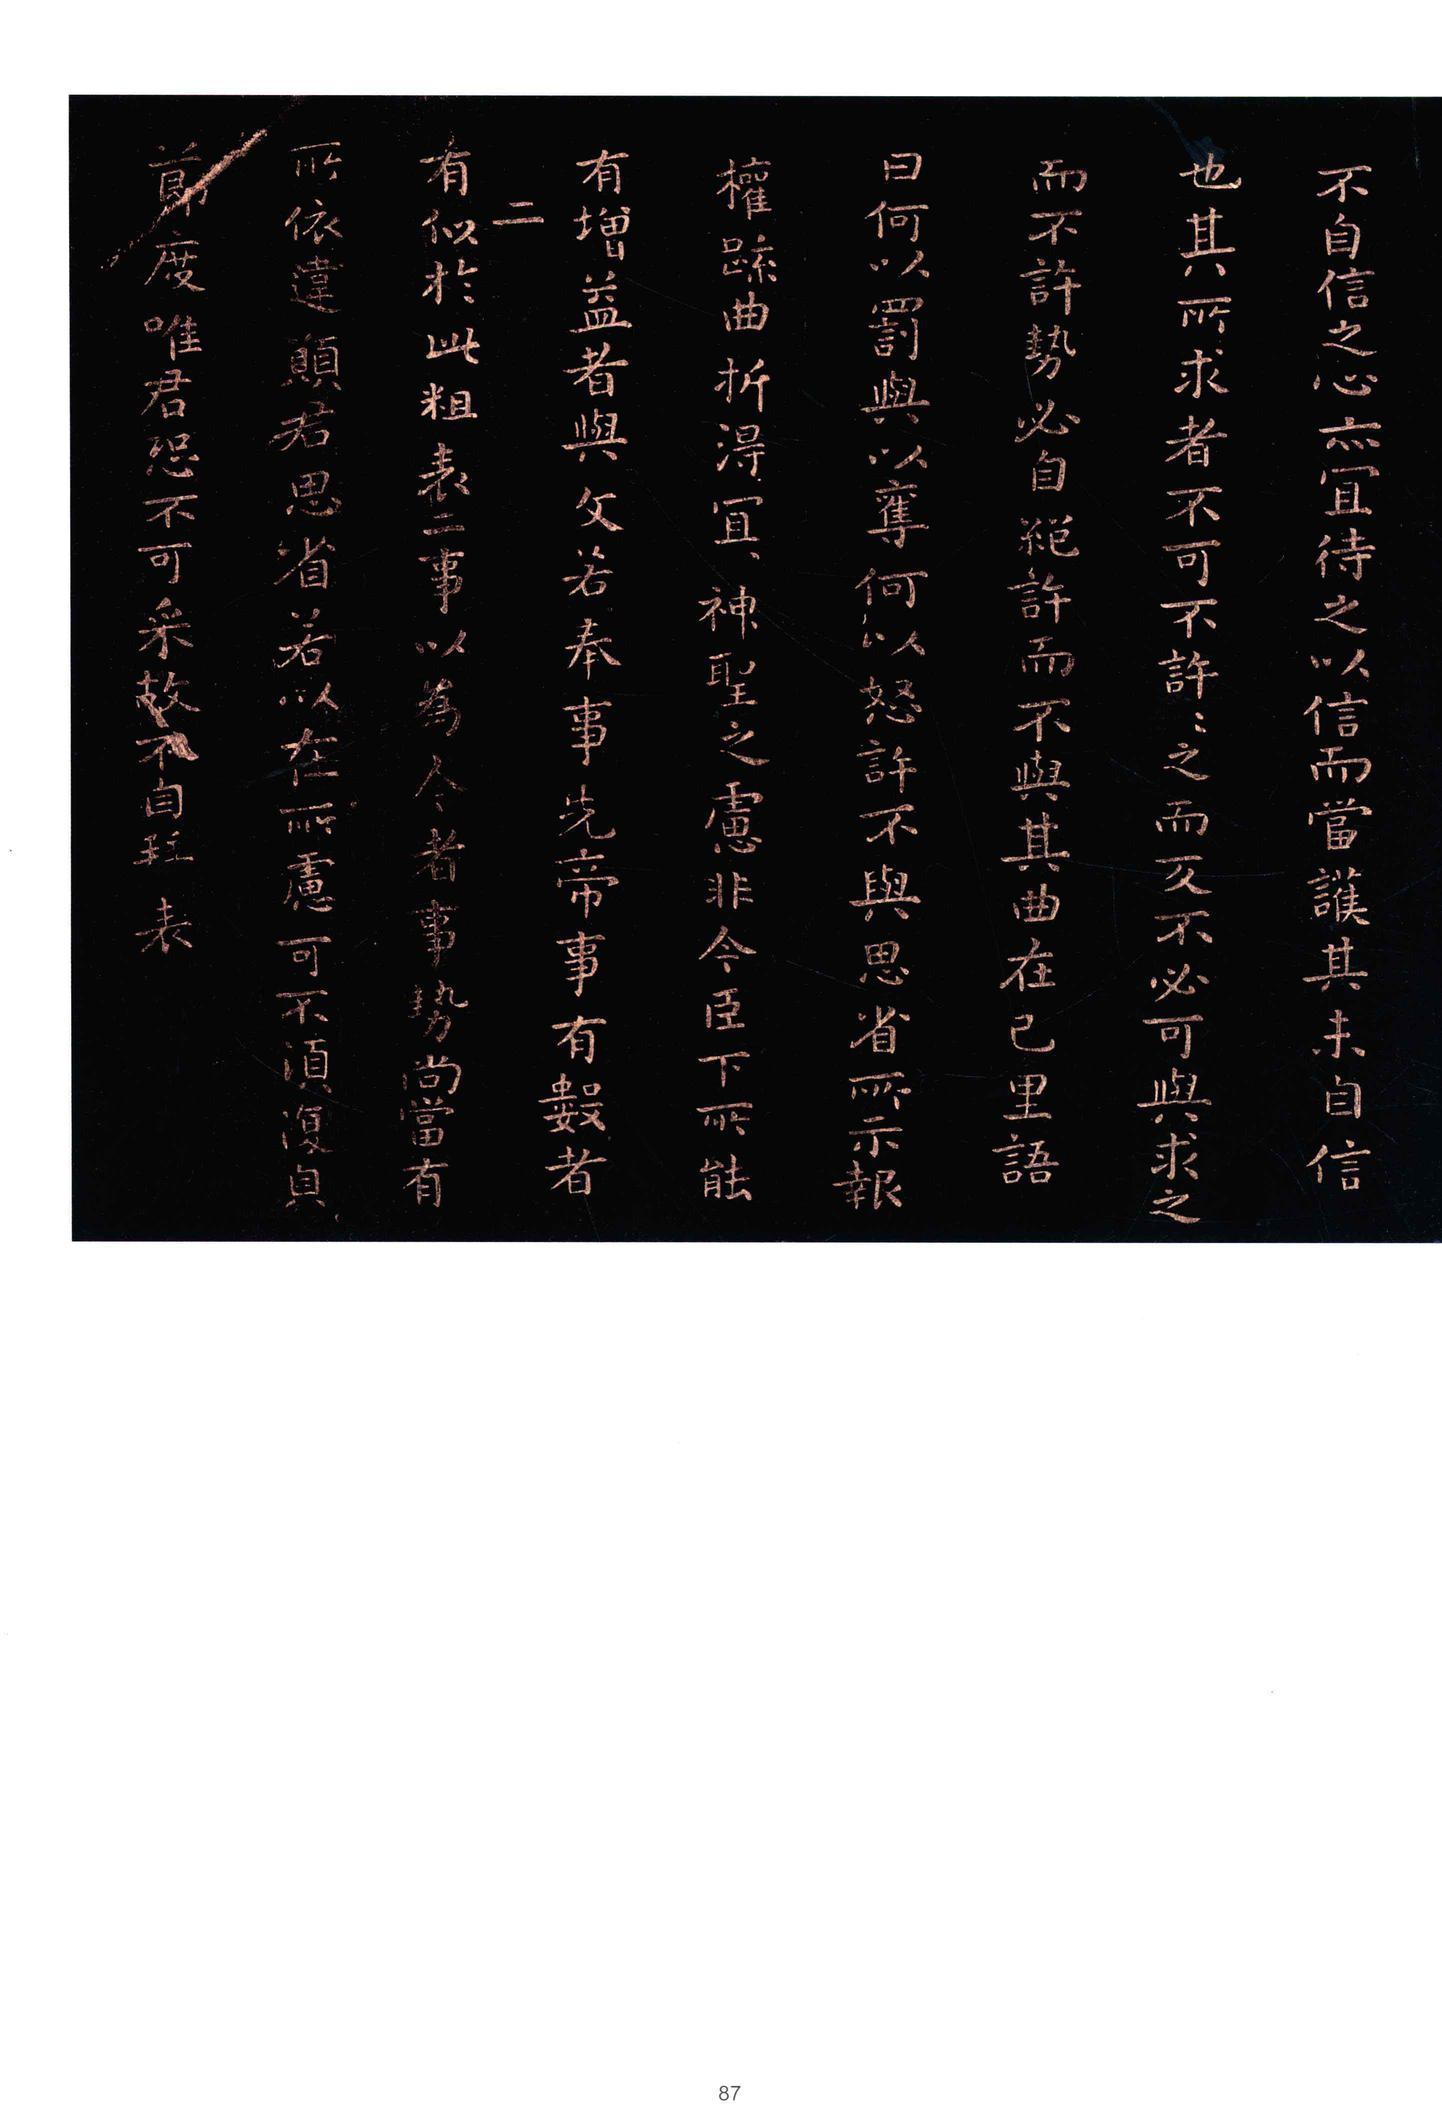 不自信之心亦宜待之以信而當護其未自信
也其所求者不可不許〻之而反不必可與求之
而不許勢必自絕許而不與其曲在己里語
曰何以罰與以奪何以怒許不與思省所示報
權疏曲折得宜神聖之慮非今臣下所能
有增益者與文若奉事先帝事有數者
二
有似於此粗表二事以為今者事勢尚當有
所依違願君思省若以在所慮可不須復貞
節度唯君恐不可采故不自拜表
87